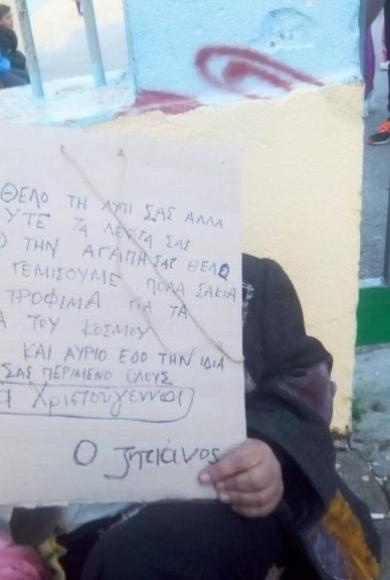 ΘΕΛΟ ΤΗ ΛΥΠΙ ΣΑΣ ΑΛΛΑ
ΥΤΕ ΤΑ ΛΕΦΤΑ ΣΑΣ
Ο ΤΗΝ ΑΓΑΠΗ ΣΑΣ ΘΕΛΟ
ΓΕΜΙΣΟΥΜΕ ΠΟΛΑ ΣΑΚΙΑ
ΤΡΟΦΙΜΑ ΓΙΑ ΤΑ
Α ΤΟΥ ΚΟΣΜΟΥ
ΚΑΙ ΑΥΡΙΟ ΕΔΟ ΤΗΝ ΙΔΙΑ
ΣΑΣ ΠΕΡΙΜΕΝΟ ΟΛΟΥΣ
Χριστουγεννα
Ο ζητιάνος